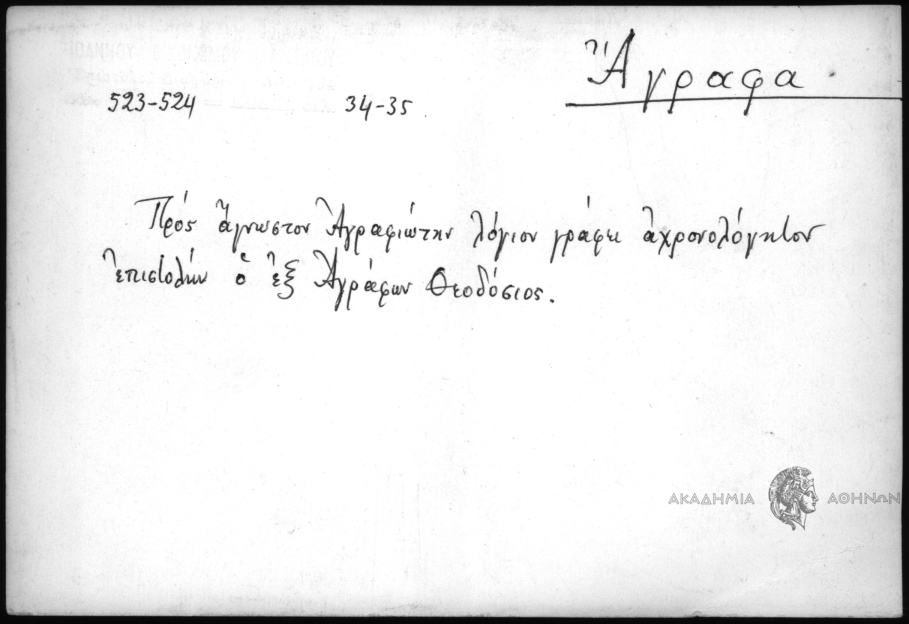 Ἄγραφα.
523-524 34-35
Πρός ἄγνωστον Ἀγραφιώτην λόγιον γράφει ἀχρονολόγητον
ἐπιστολήν ὁ ἐξ Ἀγράφων Θεοδόσιος.
ΑΚΑΔΗΜΙΑ ΑΘΗΝΩΝ